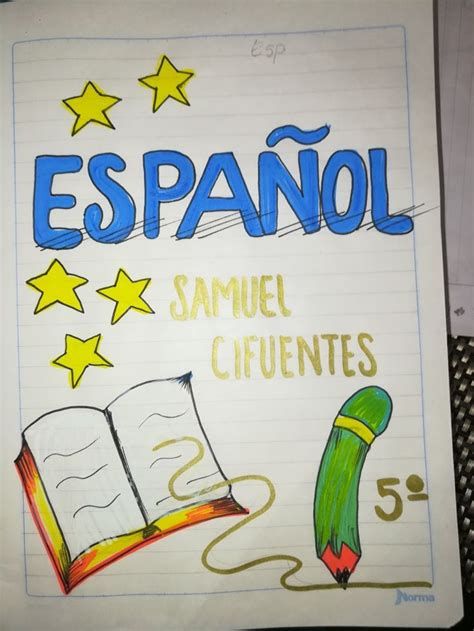 Esp
ESPAÑOL
SAMUEL
CIFUENTES
5º
Norma